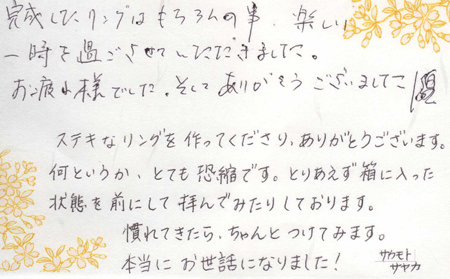 完成したリングはもちろんの事、楽しい
一時を過ごさせていただきました。
お疲れ様でした。そして ありがとうございました
ステキなリングを作ってくださり、ありがとうございます。
何というか、とても恐縮です。とりあえず箱に入った
状態を前にして拝んでみたりしております。
慣れてきたら、ちゃんとつけてみます。
本当にお世話になりました!
サカモト
サヤカ